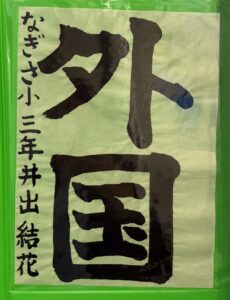 外国
なぎさ小三年井出結花